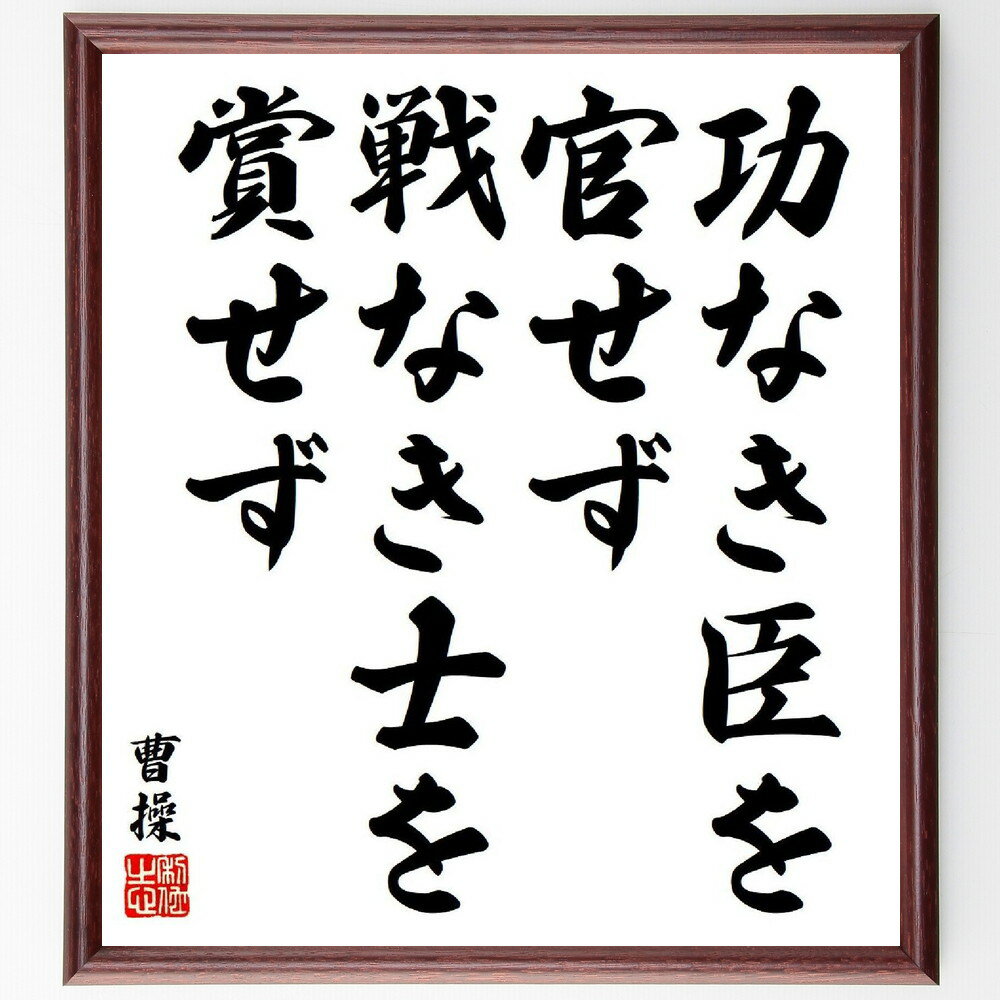 功なき臣を
官せず
戦なき士を
賞せず
曹操